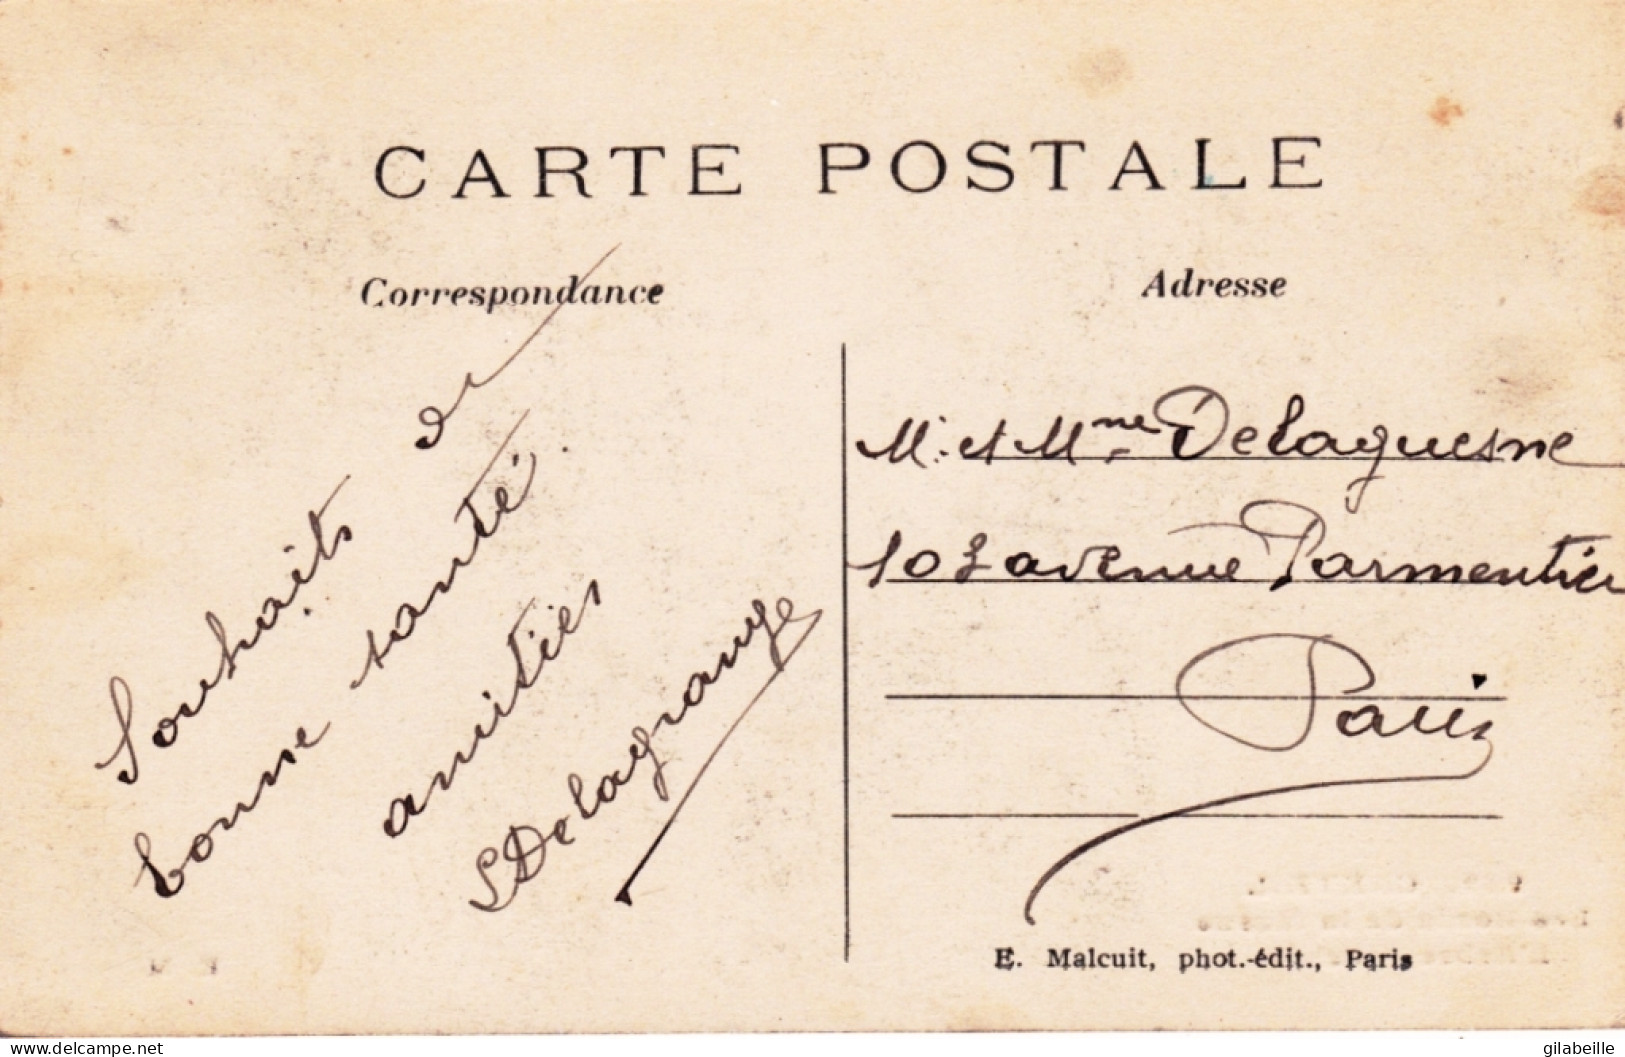 CARTE POSTALE
Correspondance
Adresse
Souhaits de
bonne santé.
amitiés
SDelagrange
M. et Mme Delaquesne
103 avenue Parmentier
Paris
E. Malcuit, phot.-édit., Paris
delcampe.net
gilabeille